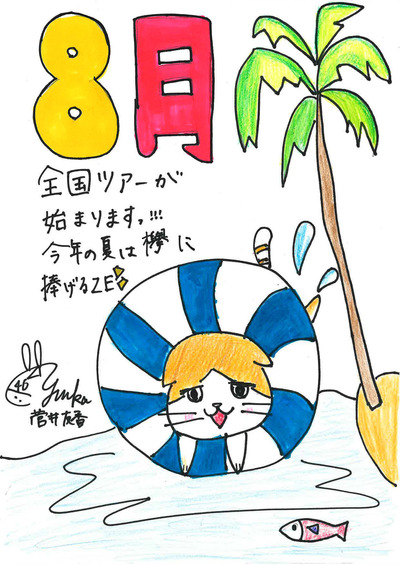 8月
全国ツアーが
始まりますッ!!!
今年の夏は欅に
捧げるZE
46
Yuuka
菅井友香